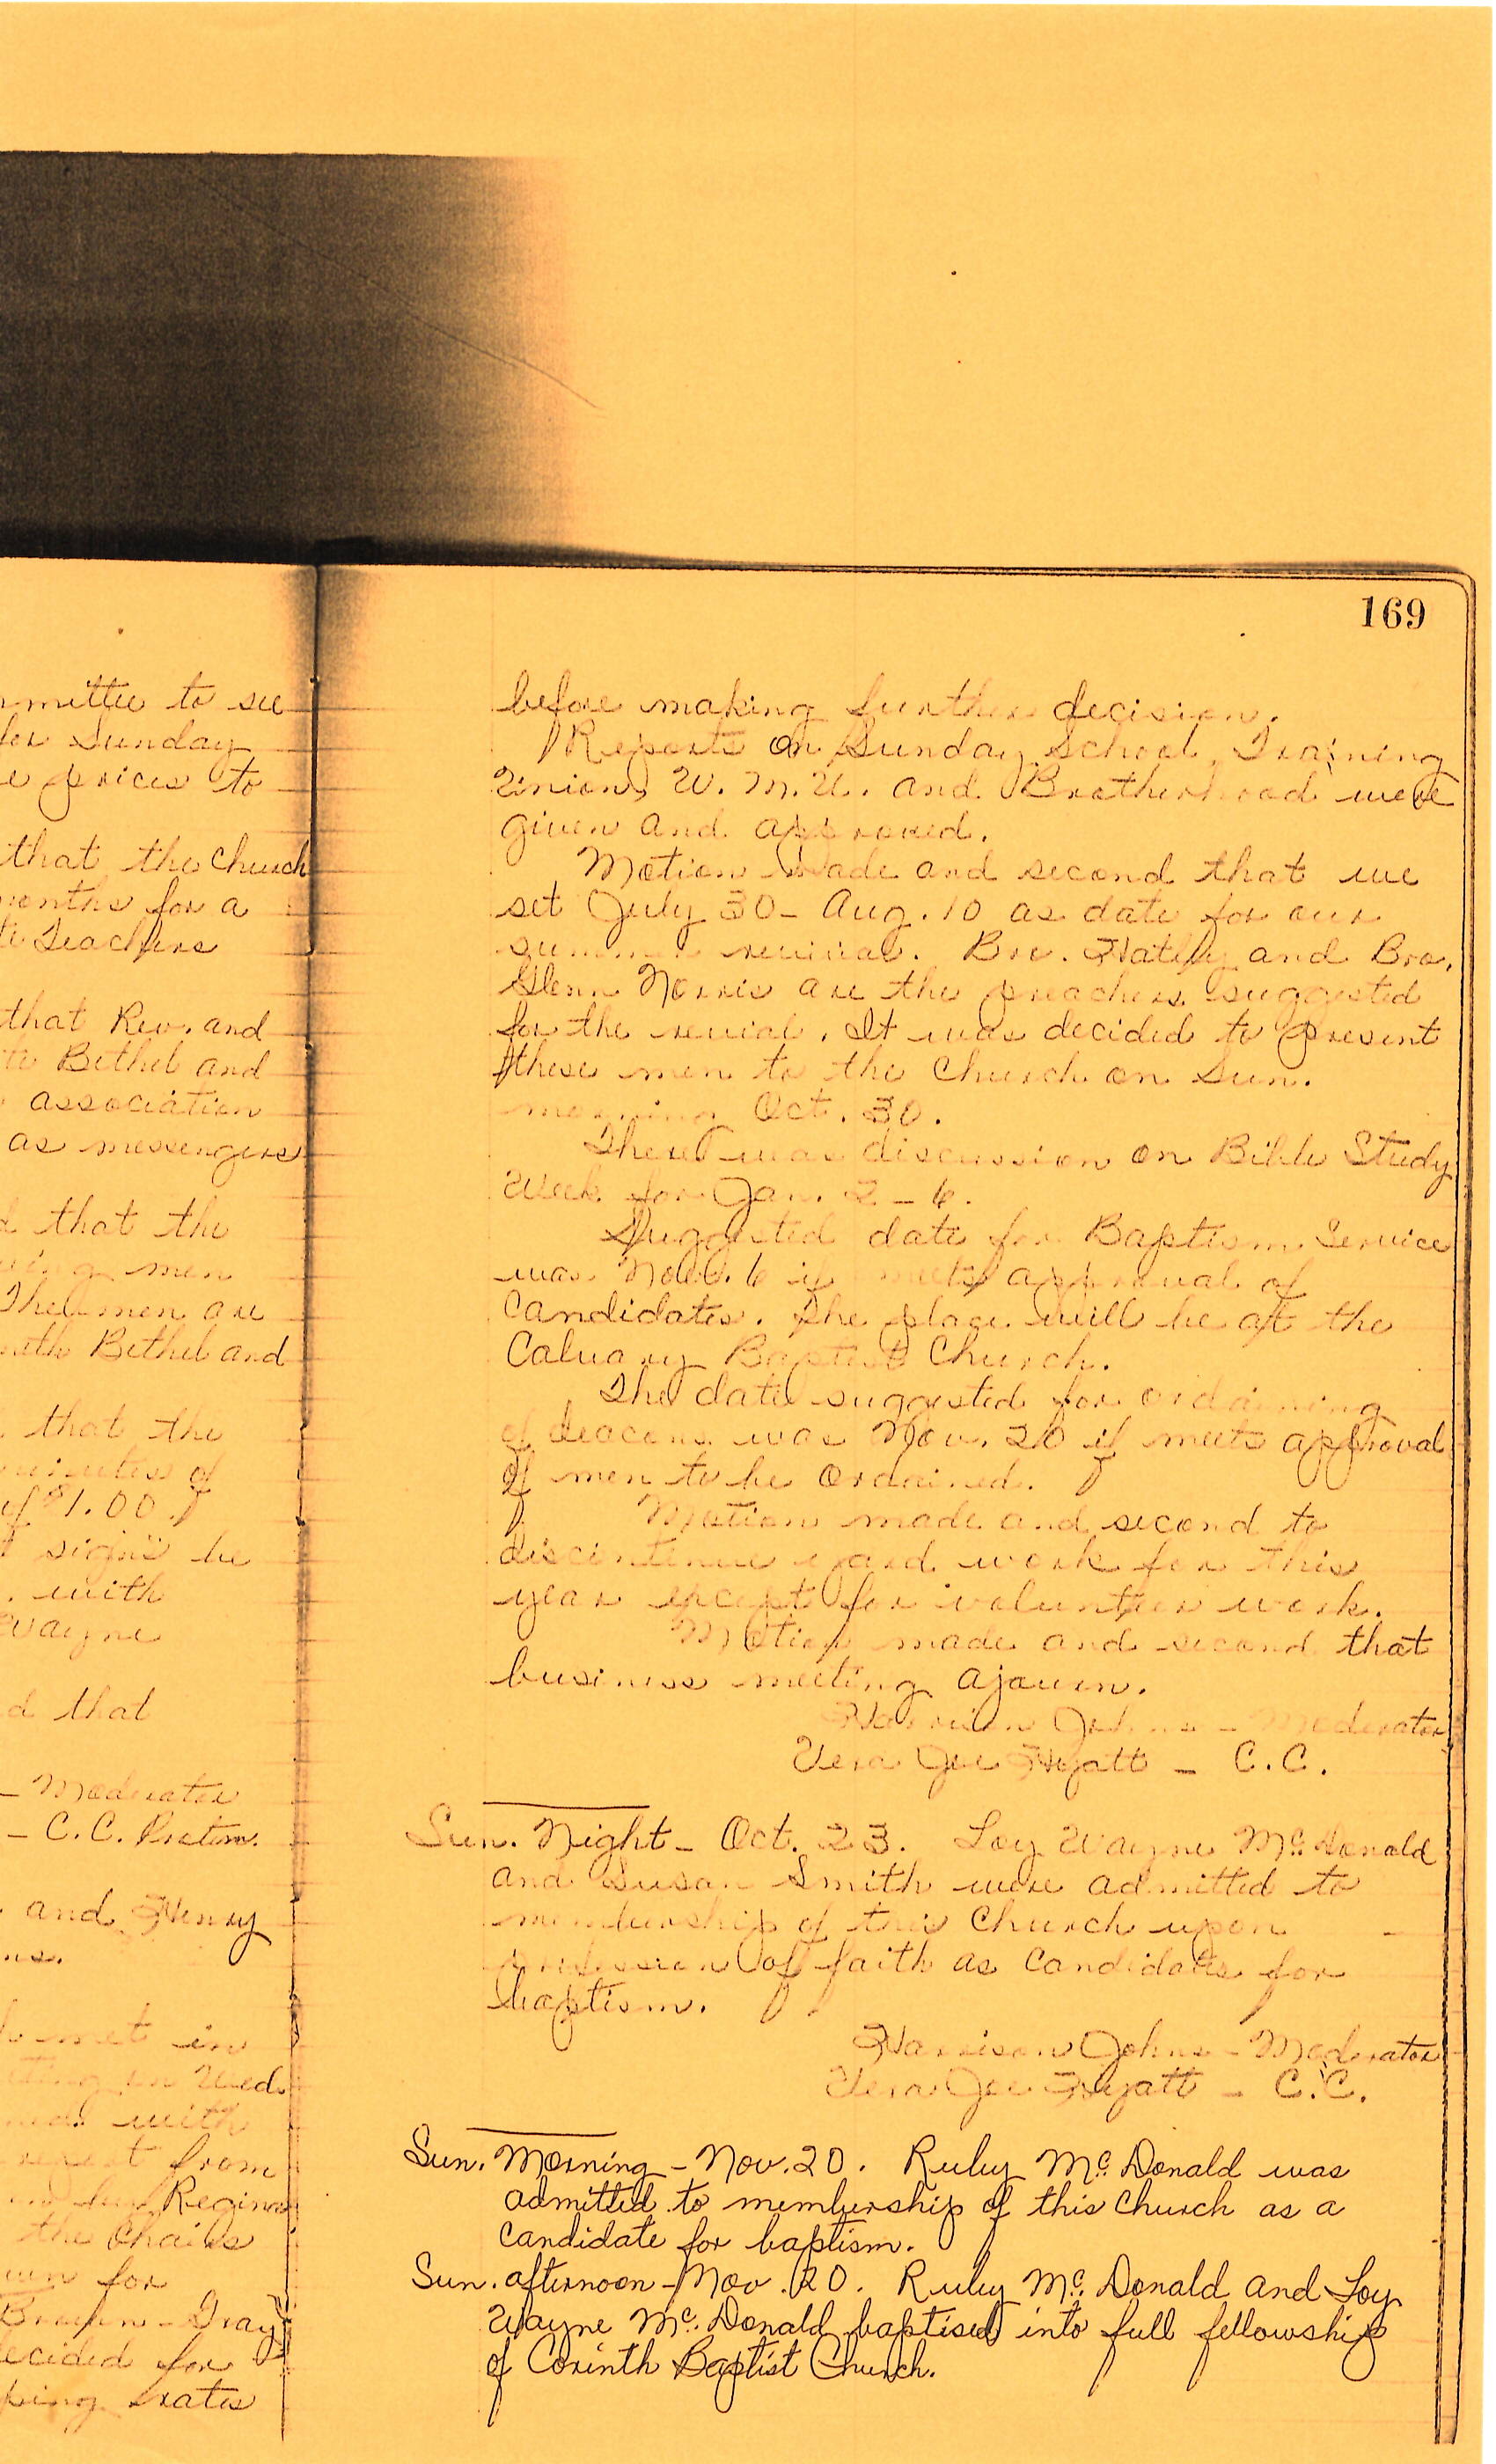 mmittee to see
for Sunday
e prices to
that the Church
months for a
te Teachers
that Rev. and
to Bethel and
association
as messengers
d that the
ing men
The men are
with Bethel and
that the
minutes of
of $1.00.
signs be
with
Wayne
d that
- Moderator
- C.C. Protem.
and Henry
ns.
met in
Wed.
with
report from
Regina
the Chairs
for
Brown - Gray
decided for
ping rates
169
before making further decision.
Reports on Sunday School, Training
Union, W.M.U. and Brotherhood were
given and approved.
Motion made and second that we
set July 30 - Aug. 10 as date for our
summer revival. Bro. Hatley and Bro.
Glenn Norris are the preachers suggested
for the revial. It was decided to present
these men to the Church on Sun.
morning Oct. 30.
There was discussion on Bible Study
Week for Jan. 2 - 6.
Suggested date for Baptism Service
was Nov. 6 if meets approval of
candidates. The place will be at the
Calvary Baptist Church.
The date suggested for ordaining
of deacons was Nov. 20 if meets approval
of men to be ordained.
Motion made and second to
discontinue yard work for this
year except for volunteer work.
Motion made and second that
business meeting ajourn.
Harrison Johns - Moderator
Vera Joe Hyatt - C.C.
Sun. Night - Oct. 23. Loy Wayne McDonald
and Susan Smith were admitted to
membership of this Church upon
profession of faith as candidates for
baptism.
Harrison Johns - Moderator
Vera Joe Hyatt - C.C.
Sun. Morning - Nov. 20. Ruby McDonald was
admitted to membership of this Church as a
candidate for baptism.
Sun. afternoon - Nov. 20. Ruby McDonald and Loy
Wayne McDonald baptised into full fellowship
of Corinth Baptist Church.